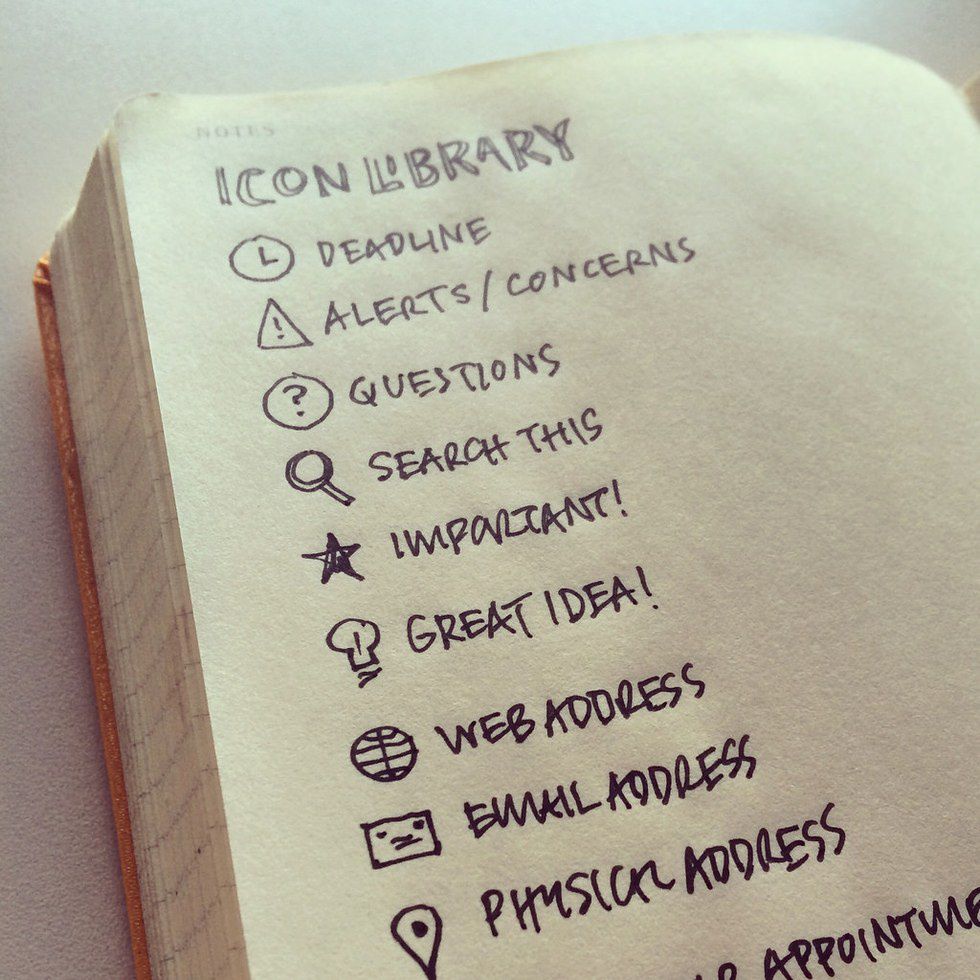 NOTES
ICON LIBRARY
DEADLINE
ALERTS / CONCERNS
QUESTIONS
SEARCH THIS
IMPORTANT!
GREAT IDEA!
WEB ADDRESS
EMAIL ADDRESS
PHYSICAL ADDRESS